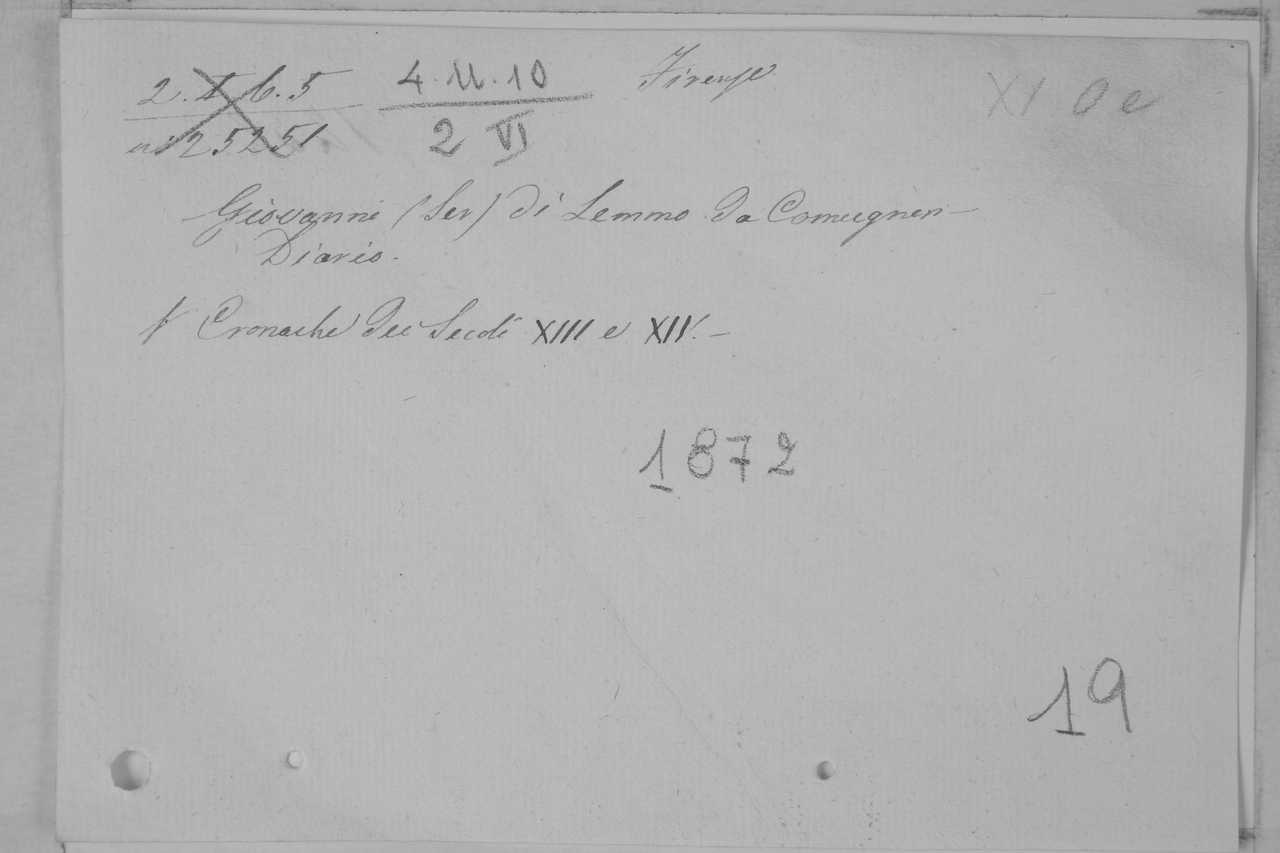 2.I.6.5 4.U.10 Firenze XI O e
25251 2 VI
Giovanni (Ser) di Lemmo da Comugnen
Diario.
V Cronache dei Secoli XIII e XIV. -
1872
19